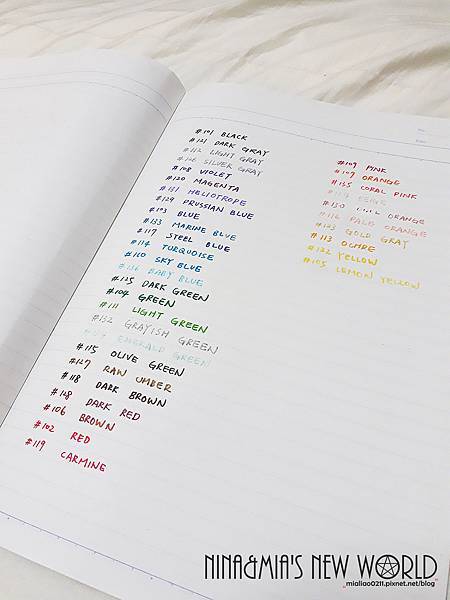 #101 BLACK
#121 DARK GRAY
#112 LIGHT GRAY
#106 SILVER GRAY
#108 VIOLET
#120 MAGENTA
#131 HELIOTROPE
#129 PRUSSIAN BLUE
#103 BLUE
#133 MARINE BLUE
#117 STEEL BLUE
#114 TURQUOISE
#110 SKY BLUE
#136 BABY BLUE
#125 DARK GREEN
#104 GREEN
#111 LIGHT GREEN
#132 GRAYISH GREEN
EMERALD GREEN
#115 OLIVE GREEN
#127 RAW UMBER
#118 DARK BROWN
#128 DARK RED
#106 BROWN
#102 RED
#119 CARMINE
#109 PINK
#107 ORANGE
#135 CORAL PINK
BEIGE
#130 ORANGE
#116 PALE ORANGE
#123 GOLD GRAY
#113 OCHRE
#122 YELLOW
#105 LEMON YELLOW
NINA&MIA'S NEW WORLD
mialiao0211.pixnet.net/blog